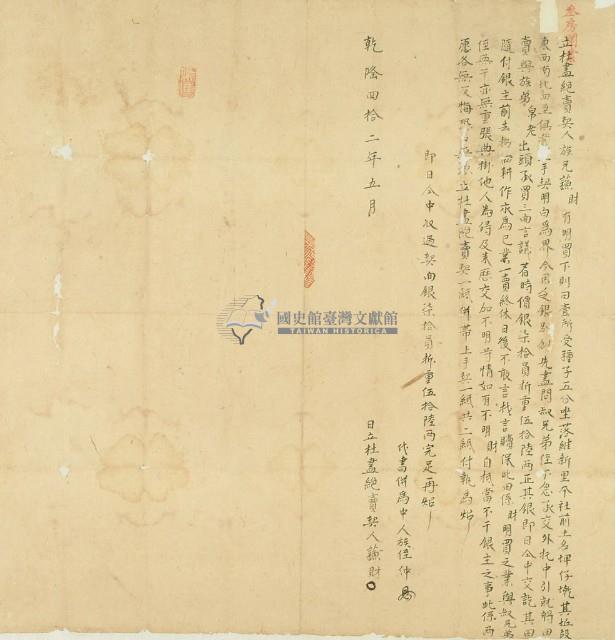 立杜盡絕賣契人族兄蘇財有明買下則田壹所受種子五分坐落維新里 社前土名埤仔墘其
東西南北四至俱 上手契明白為界今因乏銀 先盡問叔兄弟侄不 承交外托中引就將田
賣與族弟帛老出頭承買三面言議着時價銀柒拾員折重伍拾陸兩正其銀即日仝中交訖其田
隨付銀主前去 耕作永為己業一賣終休日後不敢言找言贖保此田係財明買之業與叔兄弟
侄無干亦無重張典掛他人為碍及來歷交加不明等情如有不明財自抵當不干銀主之事此係兩
愿各無反悔 立杜盡絕賣契一紙併帶上手契一紙共二紙付執為炤
即日仝中收過契內銀柒拾員折重伍拾陸兩完足再炤
代書併為中人族侄仲
日立杜盡絕賣契人蘇財
乾隆四拾二年五月
國史館臺灣文獻館
TAIWAN HISTORICA